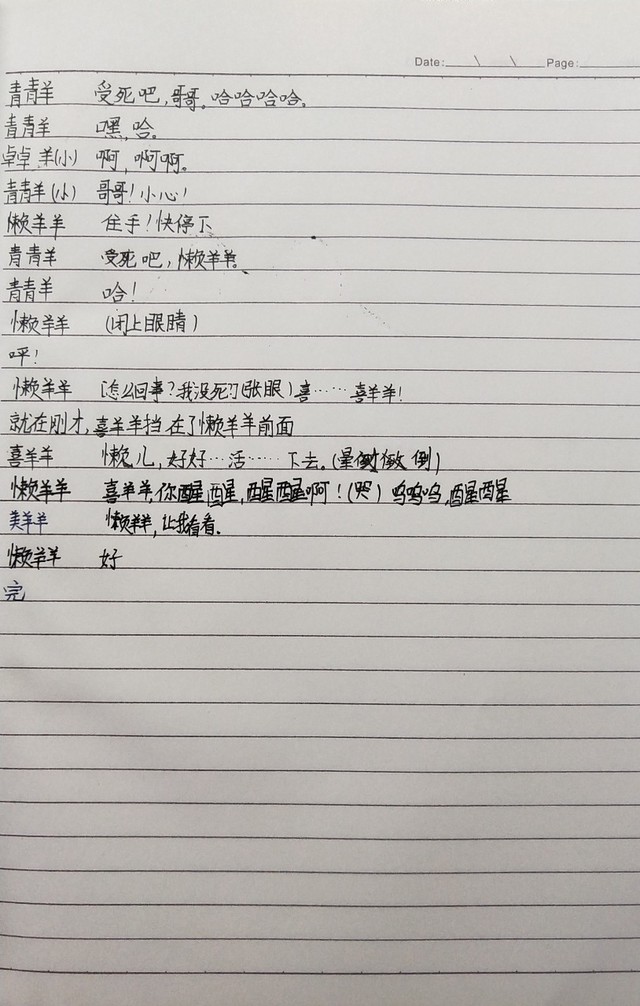 Date: \ \ Page:
青青羊 受死吧,哥哥。哈哈哈哈。
青青羊 嘿,哈。
卓卓羊(小) 啊,啊啊。
青青羊(小) 哥哥!小心!
懒羊羊 住手!快停下
青青羊 受死吧,懒羊羊。
青青羊 哈!
懒羊羊 (闭上眼睛)
呯!
懒羊羊 (怎么回事?我没死?)(张眼)喜……喜羊羊!
就在刚才,喜羊羊挡在了懒羊羊前面
喜羊羊 懒儿,好好…活……下去。(晕倒 倒)
懒羊羊 喜羊羊,你醒醒,醒醒啊!(哭)呜呜呜,醒醒
美羊羊 懒羊羊,让我看看。
懒羊羊 好
完